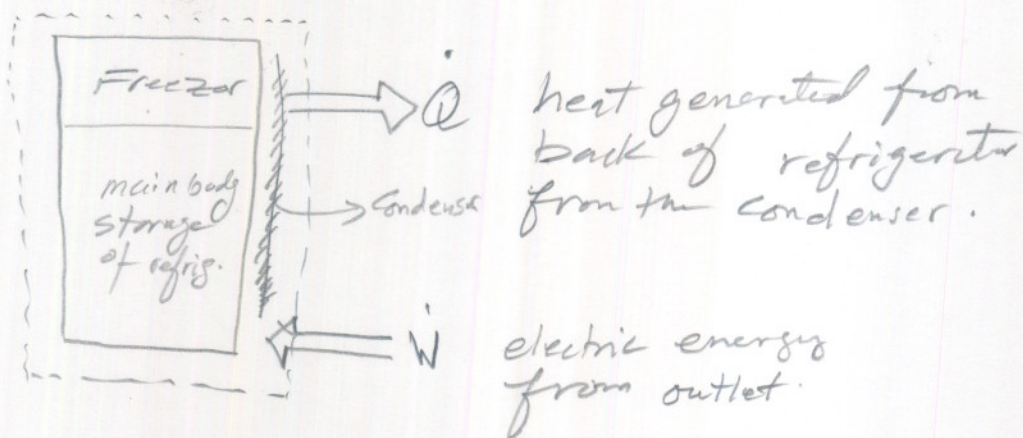 Freezor
main body
storage
of refrig.
Q̇
Condenser
Ẇ
heat generated from
back of refrigerator
from the condenser.
electric energy
from outlet.